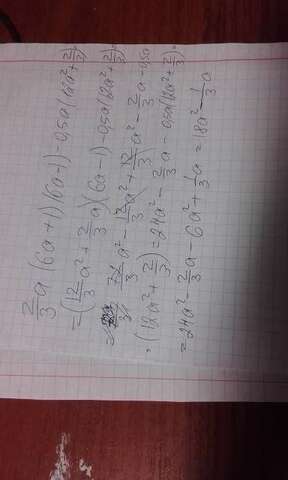 2/3 a (6a+1)(6a-1)-0,5a(12a²+2/3)
=(12/3 a²+2/3 a)(6a-1)-0,5a(12a²+2/3)
= 72/3 a²-12/3 a²+12/3 a²-2/3 a-0,5a
·(12a²+2/3)=24a²-2/3 a-0,5a(12a²+2/3)=
=24a²-2/3 a-6a²+1/3 a=18a²-1/3 a